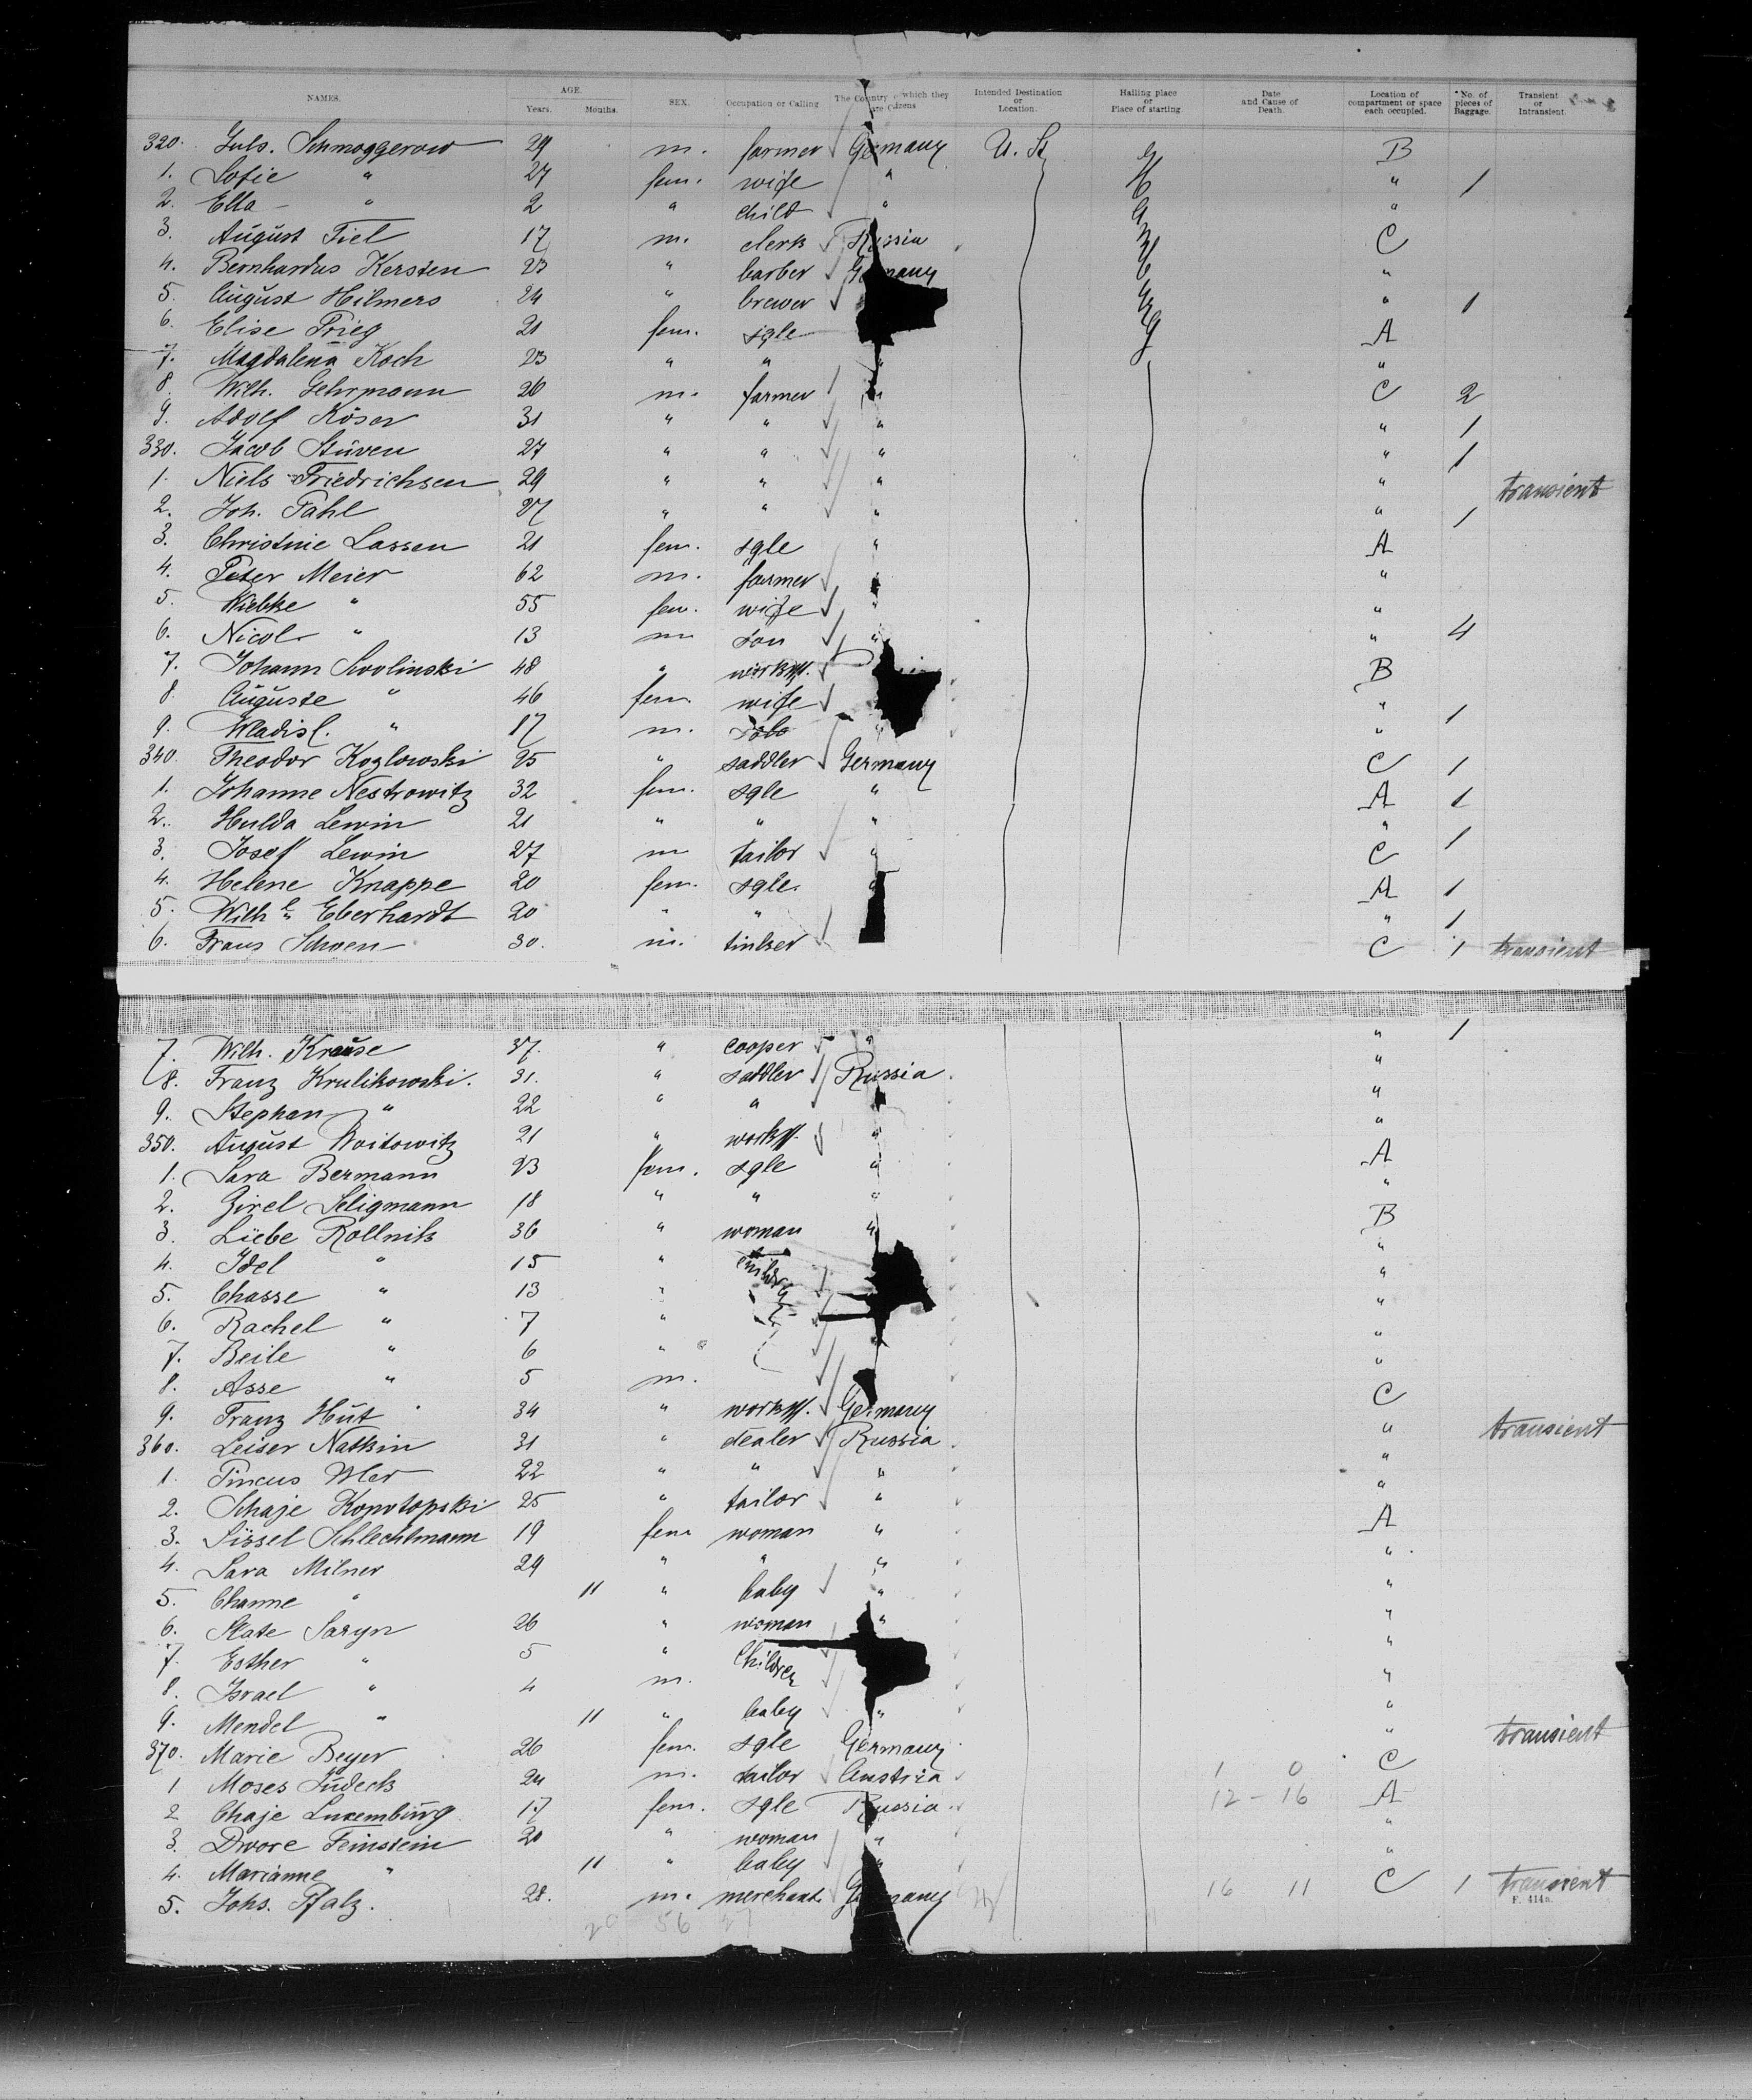 NAMES. AGE. Years. Months. SEX. Occupation or Calling The Country of which they are Citizens Intended Destination or Location. Hailing place or Place of starting. Date and Cause of Death. Location of compartment or space each occupied. *No. of pieces of Baggage. Transient or Intransient.
320. Juls. Schmoggerow 29 m. farmer Germany U. St. Hamburg B
1. Sofie " 27 fem. wife " " 1
2. Ella " 2 " child " "
3. August Tiel 17 m. clerk Russia C
4. Bernhardus Kersten 23 " barber Germany "
5. August Hilmers 24 " brewer " 1
6. Elise Frieg 21 fem. sgle A
7. Magdalena Koch 23 " " " "
8. Wilh. Gehrmann 26 m. farmer " C 2
9. Adolf Röser 31 " " " " 1
330. Jacob Stüven 27 " " " " 1
1. Niels Friedrichsen 29 " " " " transient
2. Joh. Fahl 27 " " " " 1
3. Christine Lassen 21 fem. sgle " A
4. Peter Meier 62 m. farmer " "
5. Wiebke " 55 fem. wife " "
6. Nicol " 13 m son " " 4
7. Johann Swolinski 48 " B
8. Auguste " 46 fem. wife "
9. Wladisl. " 17 m. " " 1
340. Theodor Kozlowski 25 " saddler Germany C 1
1. Johanne Nestrowitz 32 fem. sgle " A 1
2. Hulda Lewin 21 " " " "
3. Josef Lewin 27 m tailor " C 1
4. Helene Knappe 20 fem. sgle. " A 1
5. Wilhe Eberhardt 20 " " " 1
6. Franz Schoen 30. m. C 1 transient
7. Wilh. Krause 37. " cooper " " 1
8. Franz Krulikowski. 31. " saddler Russia "
9. Stephan " 22 " " "
350. August Woitowitz 21 " " "
1. Sara Bermann 23 fem. sgle " A
2. Girel Seligmann 18 " " " "
3. Liebe Rollnik 36 " woman " B
4. Idel " 15 " children "
5. Chasse " 13 " "
6. Rachel " 7 " "
7. Beile " 6 " "
8. Asse " 5 m. "
9. Franz Hüt 34 " Germany C
360. Leiser Natkin 31 " dealer Russia " transient
1. Pincus 22 " " " "
2. Schaje Konotopski 25 " tailor " "
3. Sissel Schlechtmann 19 fem woman " A
4. Sara Milner 29 " " " "
5. Channe " 11 " baby " "
6. Slate Saryn 26 " woman " "
7. Esther " 5 " Children "
8. Israel " 4 m. "
9. Mendel " 11 " baby " "
370. Marie Beyer 26 fem. sgle Germany " transient
1 Moses Judeck 24 m. tailor Austria 1 0 C
2 Chaje Luxembürg 17 fem. sgle Russia 12 - 16 A
3. Dwore Feinstein 20 " woman " "
4. Marianne " 11 " baby " "
5. Johs. Pfalz. 28. m. merchant Germany 16 11 C 1 transient
F. 414a.
20 56 27